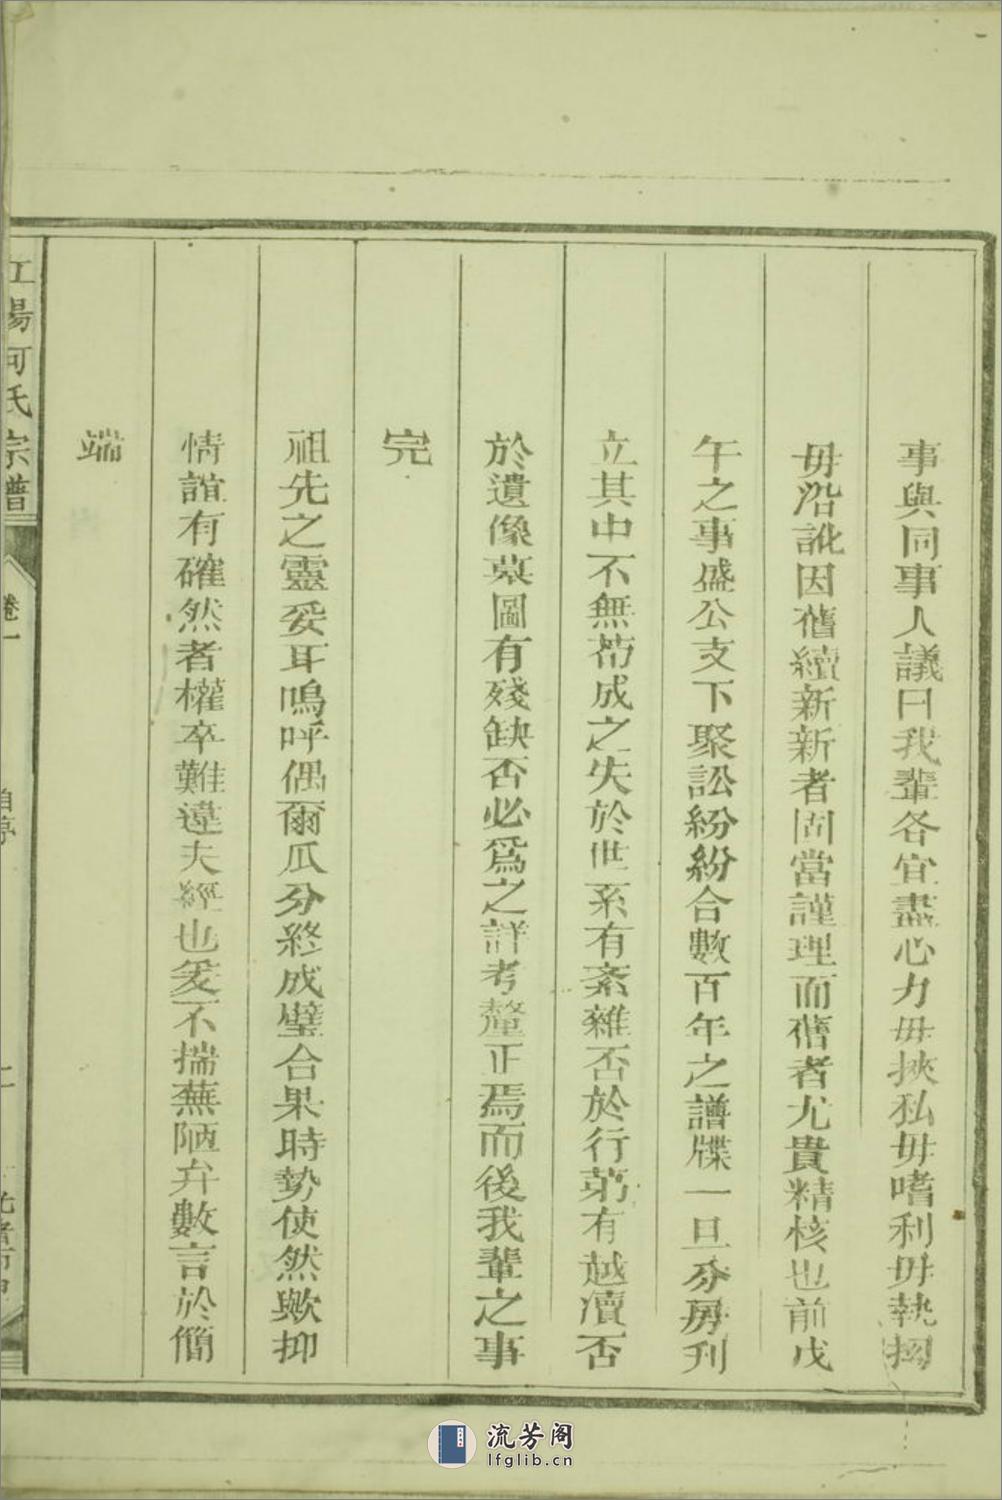 事與同事人議曰我輩各宜盡心力毋挾私毋嗜利毋執拗
毋沿訛因舊續新新者固當謹理而舊者尤貴精核也前戊
午之事盛公支下聚訟紛紛合數百年之譜牒一旦分房刋
立其中不無茍成之失於世系有紊雜否於行苐有越瀆否
於遺像墓圖有殘缺否必爲之詳考釐正焉而後我輩之事
完
祖先之靈妥耳嗚呼偶爾瓜分終成璧合果時勢使然歟抑
情誼有確然者權卒難違夫經也爰不揣蕪陋弁數言於簡
端
江陽何氏宗譜
卷一
自序
二
流芳阁
lfglib.cn